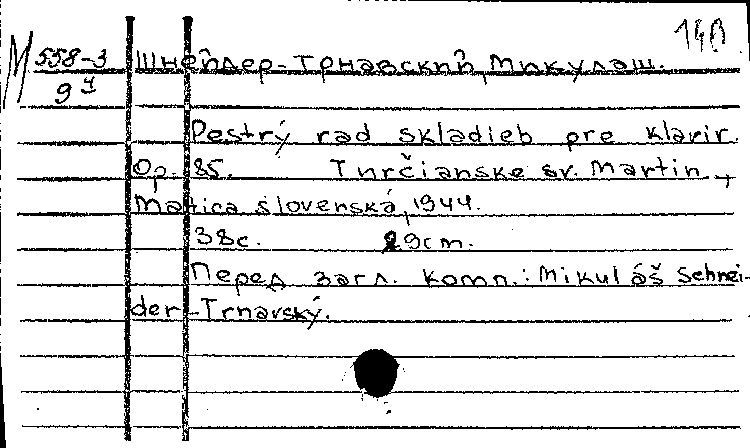 140
М 558-3
9
Шнейдер-Трнавский, Микулаш.
Pestrý rad skladieb pre klavir.
Op. 85. Turčianske sv. Martin,
Matica slovenská, 1944.
38с. 29cm.
Перед загл. комп.: Mikuláš Schnei-
der-Trnavský.